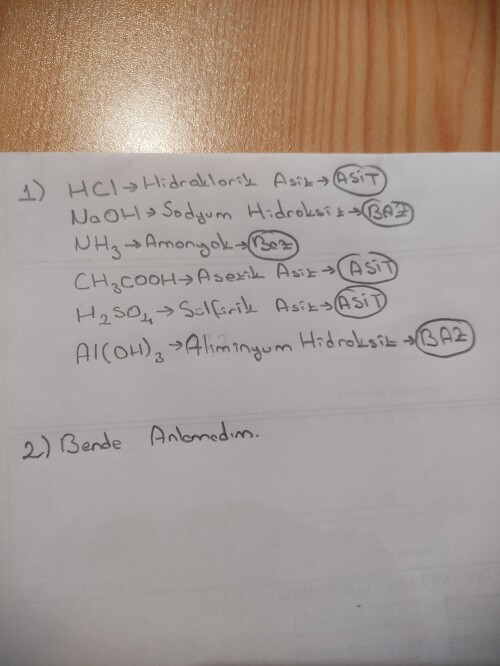 1) HCl→Hidroklorik Asit→ASiT
NaOH→Sodyum Hidroksit→BAZ
NH3→Amonyak→Baz
CH3COOH→Asetik Asit→ASiT
H2SO4→Sülfirik Asit→ASiT
Al(OH)3→Aliminyum Hidroksit→BAZ
2) Bende Anlamadım.